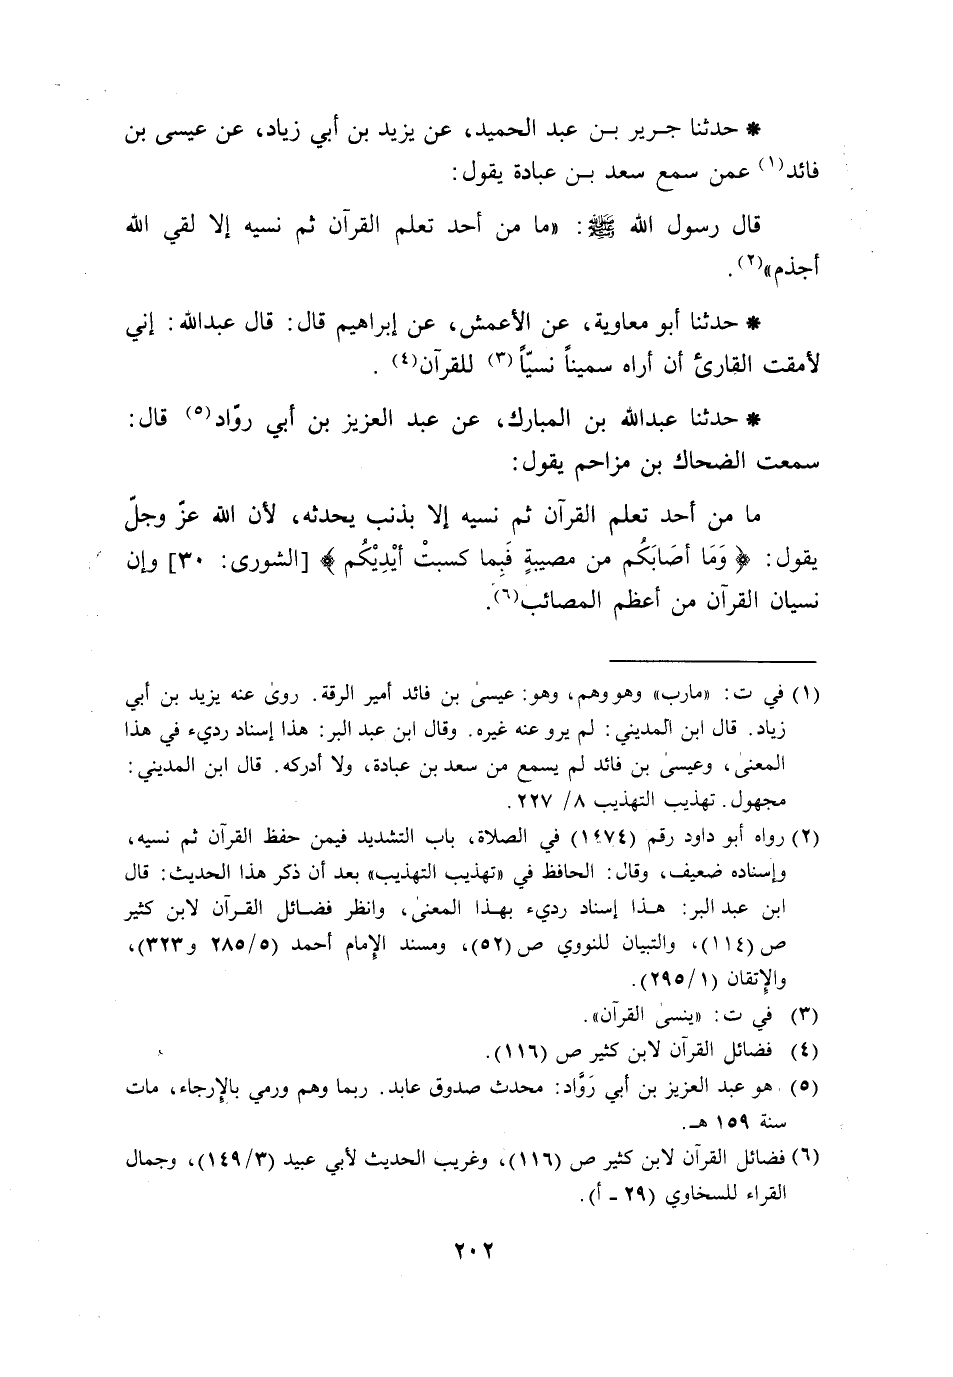 * حدثنا جرير بن عبد الحميد، عن يزيد بن أبي زياد، عن عيسى بن
فائد(١) عمن سمع سعد بن عبادة يقول:
قال رسول الله ﷺ: «ما من أحد تعلم القرآن ثم نسيه إلا لقي الله
أجذم»(٢).
* حدثنا أبو معاوية، عن الأعمش، عن إبراهيم قال: قال عبدالله: إني
لأمقت القارئ أن أراه سميناً نسيّاً(٣) للقرآن(٤).
* حدثنا عبدالله بن المبارك، عن عبد العزيز بن أبي روّاد(٥) قال:
سمعت الضحاك بن مزاحم يقول:
ما من أحد تعلم القرآن ثم نسيه إلا بذنب يحدثه، لأن الله عزّ وجلّ
يقول: ﴿وَمَا أصَابَكُم من مصيبةٍ فَبِما كسبتْ أيْدِيْكُم﴾ [الشورى: ٣٠] وإن
نسيان القرآن من أعظم المصائب(٦).
(١) في ت: «مارب» وهو وهم، وهو: عيسىٰ بن فائد أمير الرقة. روىٰ عنه يزيد بن أبي
زياد. قال ابن المديني: لم يرو عنه غيره. وقال ابن عبد البر: هذا إسناد رديء في هذا
المعنىٰ، وعيسىٰ بن فائد لم يسمع من سعد بن عبادة، ولا أدركه. قال ابن المديني:
مجهول. تهذيب التهذيب ٨/ ٢٢٧.
(٢) رواه أبو داود رقم (١٤٧٤) في الصلاة، باب التشديد فيمن حفظ القرآن ثم نسيه،
وإسناده ضعيف، وقال: الحافظ في «تهذيب التهذيب» بعد أن ذكر هذا الحديث: قال
ابن عبد البر: هذا إسناد رديء بهذا المعنىٰ، وانظر فضائل القرآن لابن كثير
ص (١١٤)، والتبيان للنووي ص (٥٢)، ومسند الإمام أحمد (٢٨٥/٥ و٣٢٣)،
والإتقان (٢٩٥/١).
(٣) في ت: «ينسىٰ القرآن».
(٤) فضائل القرآن لابن كثير ص (١١٦).
(٥) هو عبد العزيز بن أبي رَوَّاد: محدث صدوق عابد. ربما وهم ورمي بالإرجاء، مات
سنة ١٥٩ هـ.
(٦) فضائل القرآن لابن كثير ص (١١٦)، وغريب الحديث لأبي عبيد (١٤٩/٣)، وجمال
القراء للسخاوي (٢٩ - أ).
٢٠٢